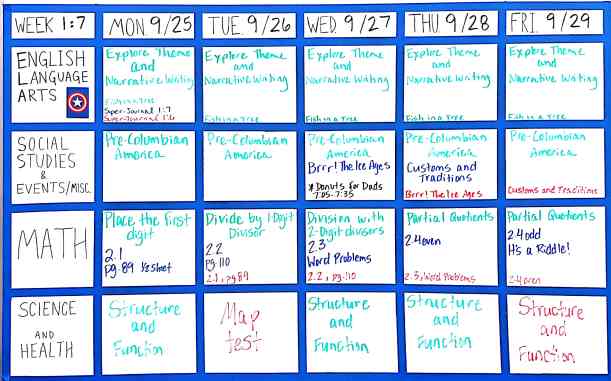 WEEK 1:7
MON. 9/25
TUE. 9/26
WED. 9/27
THU. 9/28
FRI. 9/29
ENGLISH
LANGUAGE
ARTS
Explore Theme
and
Narrative Writing
Fish in a Tree
Super-Journal 1:7
Super-Journal 1:6
Explore Theme
and
Narrative Writing
Fish in a Tree
Explore Theme
and
Narrative Writing
Fish in a Tree
Explore Theme
and
Narrative Writing
Fish in a Tree
Explore Theme
and
Narrative Writing
Fish in a Tree
SOCIAL
STUDIES
&
EVENTS/MISC.
Pre-Columbian
America
Pre-Columbian
America
Pre-Columbian
America
Brrr! The Ice Ages
* Donuts for Dads
7:05-7:35
Pre-Columbian
America
Customs and
Traditions
Brrr! The Ice Ages
Pre-Columbian
America
Customs and Traditions
MATH
Place the first
digit
2.1
pg. 89
Divide by 1-Digit
Divisor
2.2
pg. 110
2.1, pg 89
Division with
2-Digit divisors
2.3
Word Problems
2.2, pg. 110
Partial Quotients
2.4 even
2.3, Word Problems
Partial Quotients
2.4 odd
It's a Riddle!
2.4 even
SCIENCE
AND
HEALTH
Structure
and
Function
Map
test
Structure
and
Function
Structure
and
Function
Structure
and
Function